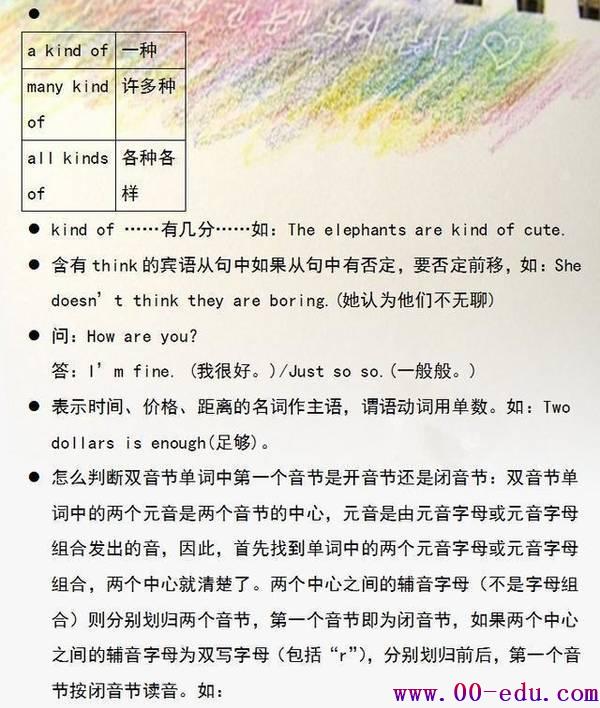 a kind of 一种
many kind 许多种
of
all kinds 各种各
of 样
● kind of ……有几分……如：The elephants are kind of cute.
● 含有think的宾语从句中如果从句中有否定，要否定前移，如：She
doesn’t think they are boring.(她认为他们不无聊)
● 问：How are you?
答：I’m fine. (我很好。)/Just so so.(一般般。)
● 表示时间、价格、距离的名词作主语，谓语动词用单数。如：Two
dollars is enough(足够)。
● 怎么判断双音节单词中第一个音节是开音节还是闭音节：双音节单
词中的两个元音是两个音节的中心，元音是由元音字母或元音字母
组合发出的音，因此，首先找到单词中的两个元音字母或元音字母
组合，两个中心就清楚了。两个中心之间的辅音字母（不是字母组
合）则分别划归两个音节，第一个音节即为闭音节，如果两个中心
之间的辅音字母为双写字母（包括“r”），分别划归前后，第一个音
节按闭音节读音。如：
www.00-edu.com